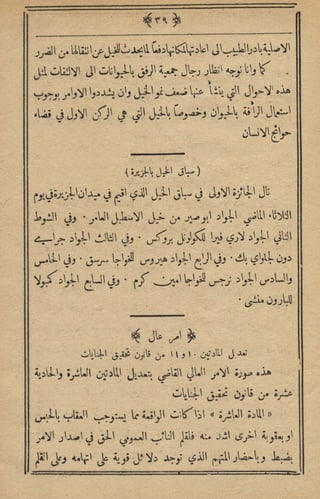 ﴿ ٣٩ ﴾
الاصلية بادر الطبيب الى اعادتها لمكانها دفعاً لما يحدث للخيل عن انتقالها من الضرر
كما واننا نوجه انظار رجال جمعية الرفق بالحيوانات الى الالتفات لمثل
هذه الاحوال التي ينشأ عنها ضعف نمو الخيل وان يشددوا الاوامر بوجوب
استعمال الرأفة بالحيوان وخصوصاً بالخيل التي هي الركن الاول في قضاء
حوائج الانسان
( سباق الخيل بالجزيرة )
نال الجائزة الاولى في سباق الخيل الذي اقيم في ميدان الجزيرة في يوم
الثلاثاء الماضي الجواد ابو صير من خيل الاسطبل العامر . وفي الشوط
الثاني الجواد لاري فيرا للكولونل بروكس . وفي الثالث الجواد جراسيه
دون لجلواي بك . وفي الرابع الجواد هيروس للخواجا سرسق . وفي الخامس
والسادس الجواد نرجس للخواجا امين كرم . وفي السابع الجواد كمبولا
للبارون منشى .
﴿ امر عال ﴾
تعديل المادتين ١٠ و ١٤ من قانون تحقيق الجنايات
هذه صورة الامر العالي القاضي بتعديل المادتين العاشرة والحادية
عشرة من قانون تحقيق الجنايات
« المادة العاشرة » اذا كانت الواقعة مما يستوجب العقاب بالحبس
او بعقوبة اخرى اشد منه فلقلم النائب العمومي الحق في اصدار الامر
بضبط وباحضار المتهم الذي توجد دلائل قوية على اتهامه وعلى القلم